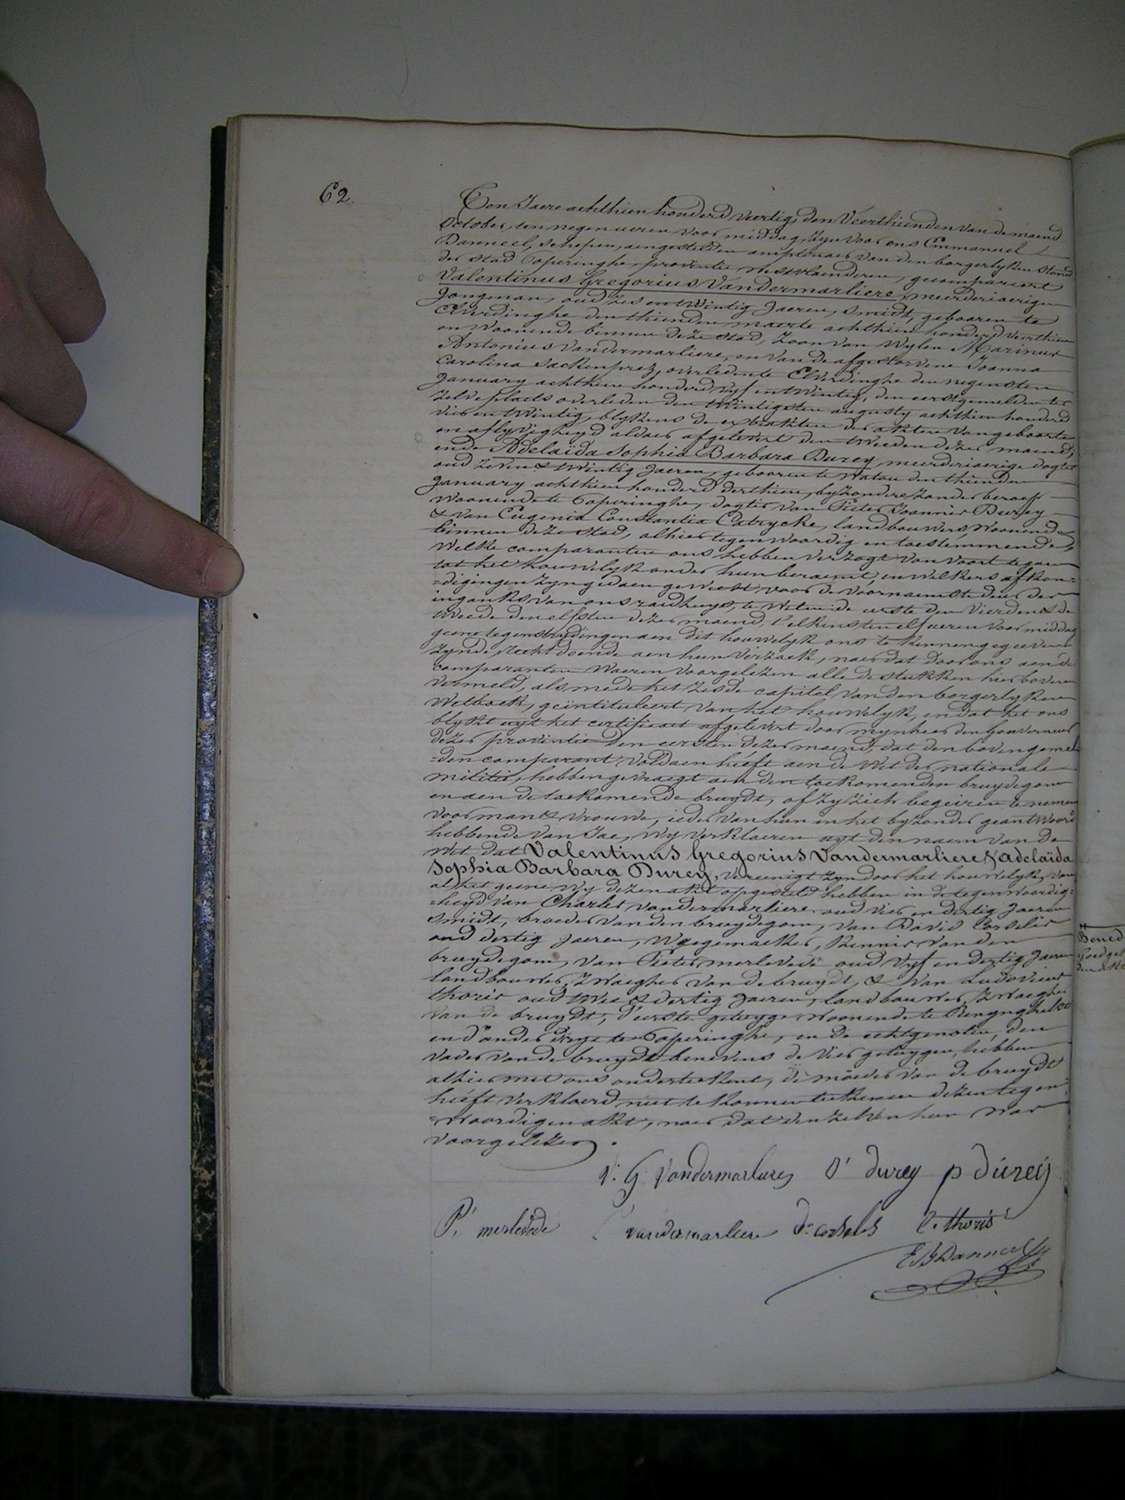 62
Ten Jaere achthien honderd veertig, den Veerthienden van de maend
October, ten negen ueren voor middag, zyn voor ons Emmanuel
Danneel, Schepen, aengestelden amptenaer van den borgerlyken stand
der stad Poperinghe, provintie Westvlaenderen, gecompareert
Valentinus Gregorius Vandermarliere, meerderjaerigen
Jongman, oud zes en twintig Jaeren, Smidt, gebooren te
Elverdinghe den thienden maerte achthien honderd veerthien
en woonende binnen deze stad, zoon van wylen Marinus
Antonius Vandermarliere, en van de afgestorvene Joanna
Carolina overleden te Elverdinghe den negensten
January achthien honderd vyf en twintig, den eerstgemelden ter
zelve plaets overleden den twintigsten augusty achthien honderd
vier en twintig, blykens de extrakten der akten van geboorte
en aflyvigheyd aldaer afgelevert den tweeden dezer maend,
ende Adelaida Sophia Barbara Durey, meerderjaerige dogter
oud zeven & twintig Jaeren, gebooren te Watou den thienden
January achthien honderd derthien, byzondere zonder beroep
woonende te Poperinghe, dogter van Pieter Joannes Durey
& van Eugenia Constantia Catrycke, landbouwers, woonende
binnen deze stad, alhier tegenwoordig en toestemmende,
Welke comparanten ons hebben verzogt van voort te gaen
tot het houwelyk onder hun beraemt, en welkers afkon-
=digingen zyn gedaen geweest voor de voornaemste deur des
ingangs van ons raedhuys, te weten de eerste den vierden & de
tweede den elfsten dezer maend, t'elkens ten elf ueren voor middag
geene tegenstrydingen aen dit houwelyk ons te kennen gegeeven
zynde, recht doende aen hun verzoek, naer dat door ons aen de
comparanten waeren voorgelezen alle de stukken hier boven
vermeld, als mede het zesde capitel van den borgerlyken
Wetboek, geïntituleert van het houwelyk, en dat het ons
blykt uyt het certificaet afgelevert door mynheer den Gouverneur
dezer provintie den eersten dezer maend, dat den bovengemel-
=den comparant voldaen heeft aen de wet der nationale
militie, hebben gevraegt aen den toekomenden bruydegom
en aen de toekomende bruydt, of zy zich begeiren te nemen
voor man & vrouwe, ieder van hun in het byzonder geantwoord
hebbende van Jae, Wy verklaeren uyt den naem van de
Wet dat Valentinus Gregorius Vandermarliere & Adelaida
Sophia Barbara Durey, vereenigt zyn door het houwelyk, van
al het geene wy dezen akt opgesteld hebben in de tegenwoordig-
=heyd van Charles Vandermarliere oud vier en dertig Jaeren
Smidt, broeder van den bruydegom, van David
oud dertig Jaeren, Wagemaeker, kennis van den
bruydegom, van Pieter Merlevede oud vyf en dertig Jaeren
landbouwer, zwaeger van de bruydt, & van Ludovicus
Thoris oud twee & dertig Jaeren, landbouwer, zwaeger
van de bruydt, d'eerste getuyge woonende te Reninghelst
en d'ander drye te Poperinghe, en de echtgenoten, den
vader van de bruydt benevens de vier getuygen, hebben
alhier met ons onderteekent, de moeder van de bruydt
heeft verklaerd niet te konnen teekenen dezen tegen-
=woordigen akt, naer dat den zelven hun was
voorgelezen.
V. G. Vandermarliere D' durey p dúreÿ
P. merlevede C vandermarliere L. thoris
E B Danneel